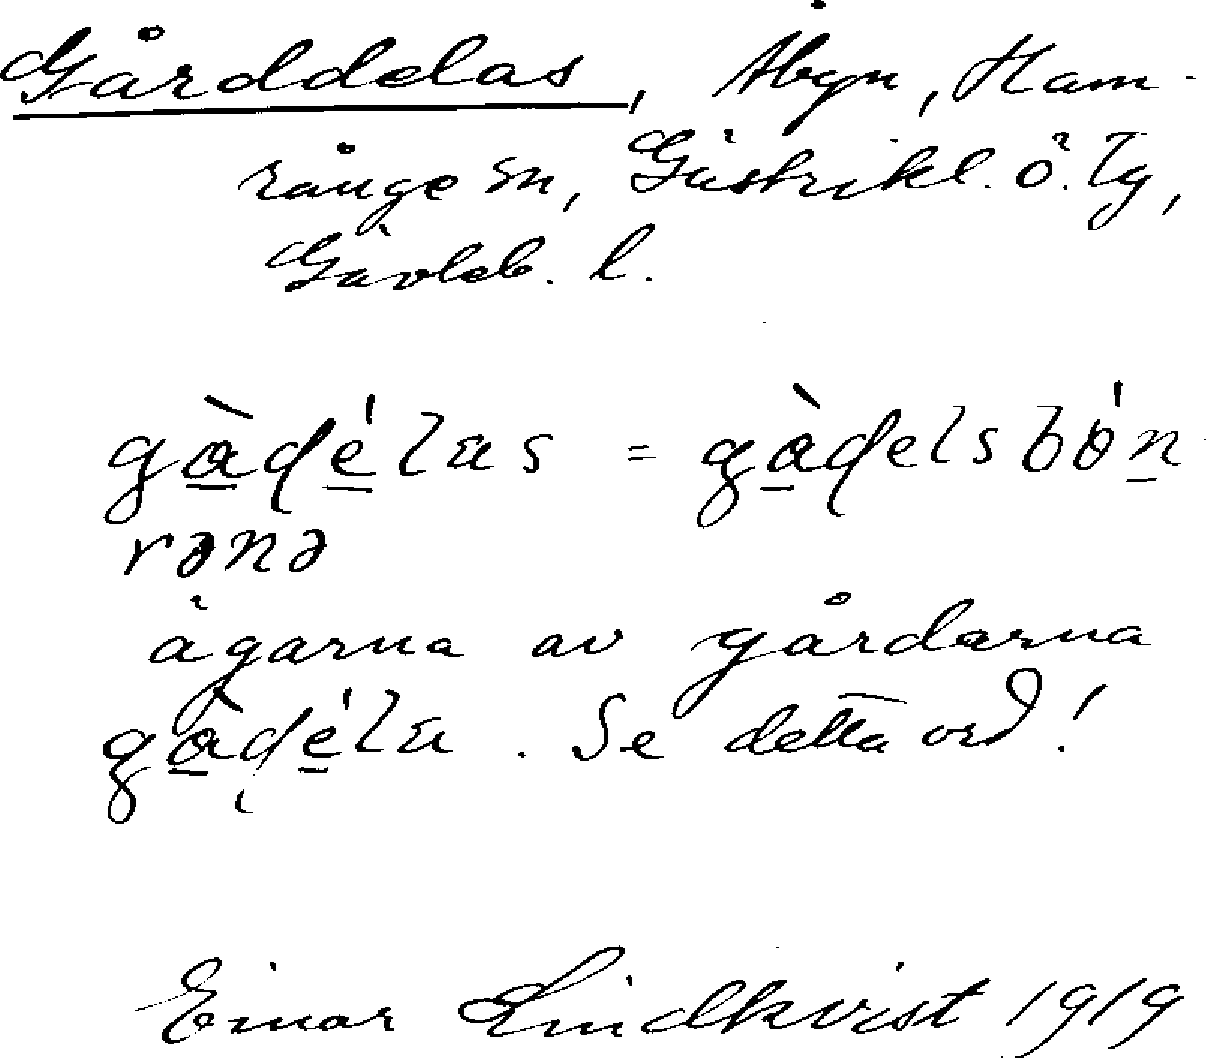 Gårddelas, Åbyn, Ham-
rånge sn, Gästrikl. ö. Tg,
Gävleb. l.
gàḍélas = gàḍelsbón
rənə
ägarna av gårdarna
gàḍéla. Se detta ord!
Einar Lindkvist 1919